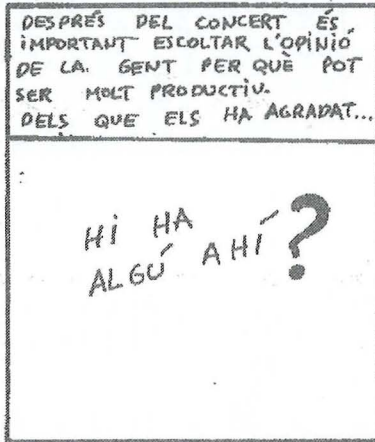 DESPRÉS DEL CONCERT ÉS
IMPORTANT ESCOLTAR L'OPINIÓ
DE LA. GENT PER QUÈ POT
SER MOLT PRODUCTIU.
DELS QUE ELS HA AGRADAT...
HI HA
ALGÚ AHÍ?